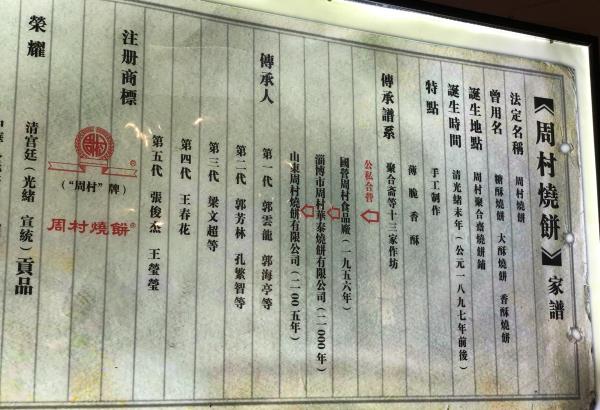 《周村燒餅》家譜
法定名稱 周村燒餅
曾用名 糖酥燒餅 大酥燒餅 香酥燒餅
誕生地點 周村聚合齋燒餅鋪
誕生時間 清光緒末年（公元一八九七年前後）
特點 手工制作
薄 脆 香 酥
傳承譜系 聚合斋等十三家作坊
公私合營
國營周村食品廠（一九五六年）
淄博市周村華泰燒餅有限公司（二〇〇〇年）
山東周村燒餅有限公司（二〇〇五年）
傳承人 第一代 郭雲龍 郭海亭等
第二代 郭芳林 孔繁智等
第三代 梁文超等
第四代 王春花
第五代 張俊杰 王瑩瑩
注册商標
®
（"周村"牌）
周村燒餅®
榮耀 清宫廷（光緒 宣統）貢品